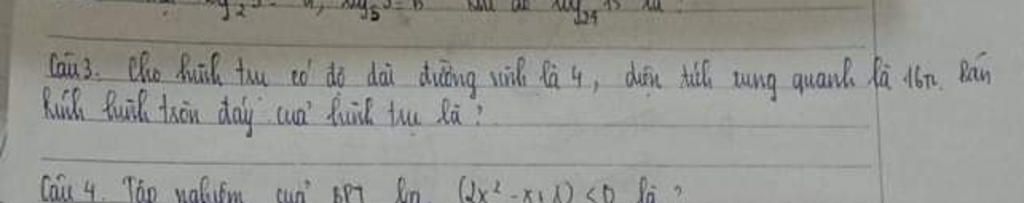 Câu 3. Cho hình trụ có độ dài đường sinh là 4, diện tích xung quanh là 16π. Bán
kính hình tròn đáy của hình trụ là?
Câu 4. Tập nghiệm của BPT ln (2x² - x + 1) < 0 là?